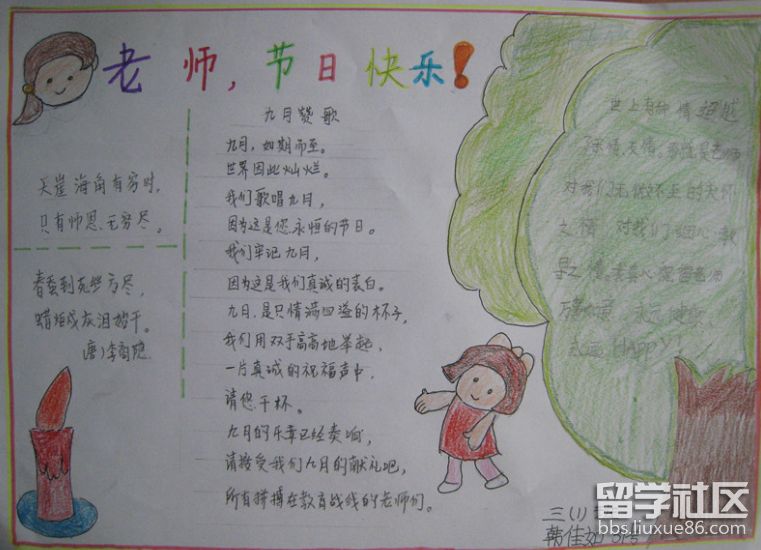 老师,节日快乐!
天崖海角有穷时,
只有师恩无穷尽。
春蚕到死丝方尽,
蜡炬成灰泪始干。
唐)李商隐
九月赞歌
九月,如期而至。
世界因此灿烂。
我们歌唱九月,
因为这是您永恒的节日。
我们牢记九月,
因为这是我们真诚的表白。
九月,是只情满四溢的杯子,
我们用双手高高地举起,
一片真诚的祝福声中,
请您干杯。
九月的乐章已经奏响,
请接受我们九月的献礼吧,
所有拼搏在教育战线的老师们。
世上有 情超越
了亲情、友情。 是老师
对我们无微不至的关怀
之情 对我们
之情。 老师
永远健康、
永远HAPPY
三(1)
韩佳
留学社区
bbs.liuxue86.com